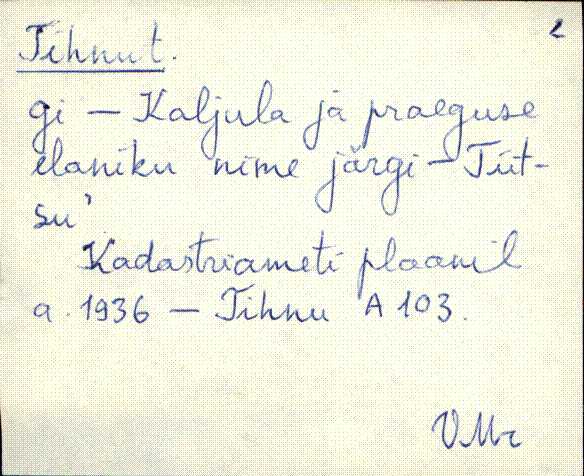 2
Tihnut.
gi – Kaljula ja praeguse
elaniku nime järgi – Tiit-
su'
Kadastriameti plaanil
a. 1936 – Tihnu A 103.
VMr